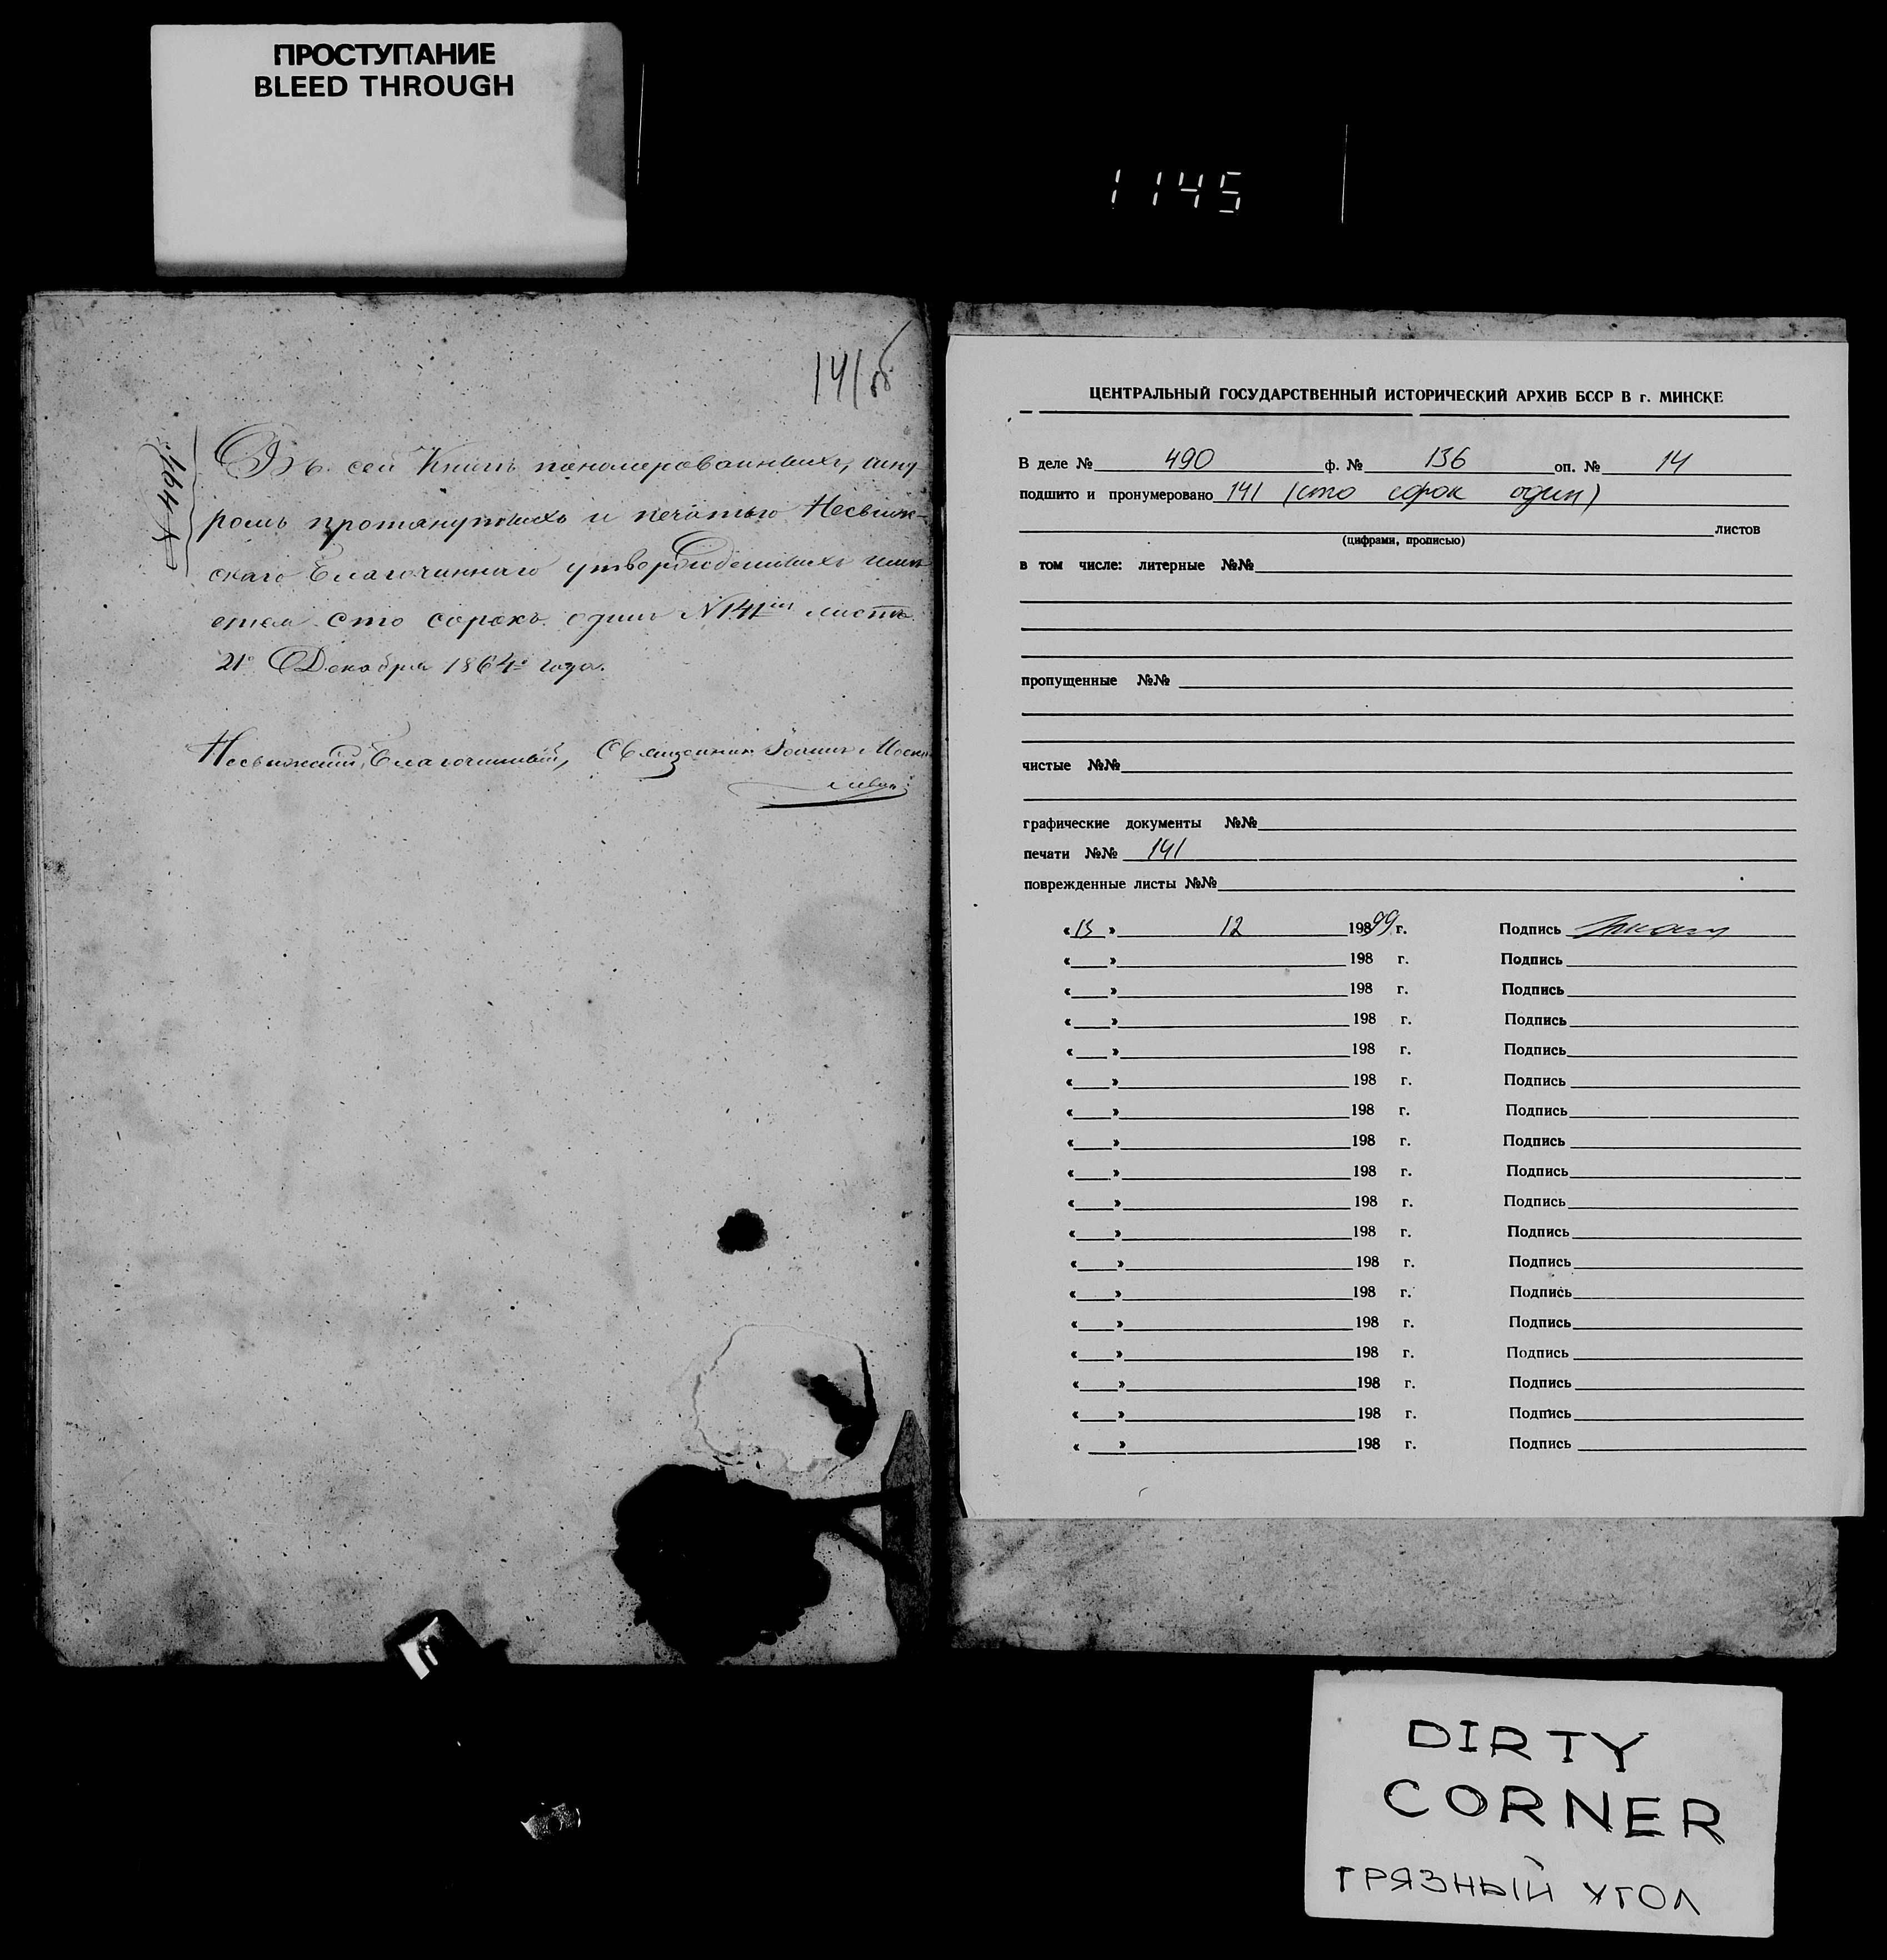 ПРОСТУПАНИЕ
BLEED THROUGH
1145
141 об
Въ сей Книгѣ пономерованныхъ, шну-
ромъ протянутыхъ и печатью Несвиж-
скаго Благочиннаго утвержденныхъ
сто сорокъ одинъ №141 листъ
21го Декабря 1864го года.
Несвижскій Благочинный, Священникъ Іоаннъ
ЦЕНТРАЛЬНЫЙ ГОСУДАРСТВЕННЫЙ ИСТОРИЧЕСКИЙ АРХИВ БССР В г. МИНСКЕ
В деле № 490 ф. № 136 оп. № 14
подшито и пронумеровано 141 (сто сорок один)
листов
(цифрами, прописью)
в том числе: литерные №№
пропущенные №№
чистые №№
графические документы №№
печати №№ 141
поврежденные листы №№
«15» 12 19899 г. Подпись
« » 198 г. Подпись
« » 198 г. Подпись
« » 198 г. Подпись
« » 198 г. Подпись
« » 198 г. Подпись
« » 198 г. Подпись
« » 198 г. Подпись
« » 198 г. Подпись
« » 198 г. Подпись
« » 198 г. Подпись
« » 198 г. Подпись
« » 198 г. Подпись
« » 198 г. Подпись
« » 198 г. Подпись
« » 198 г. Подпись
« » 198 г. Подпись
« » 198 г. Подпись
DIRTY
CORNER
ГРЯЗНЫЙ УГОЛ